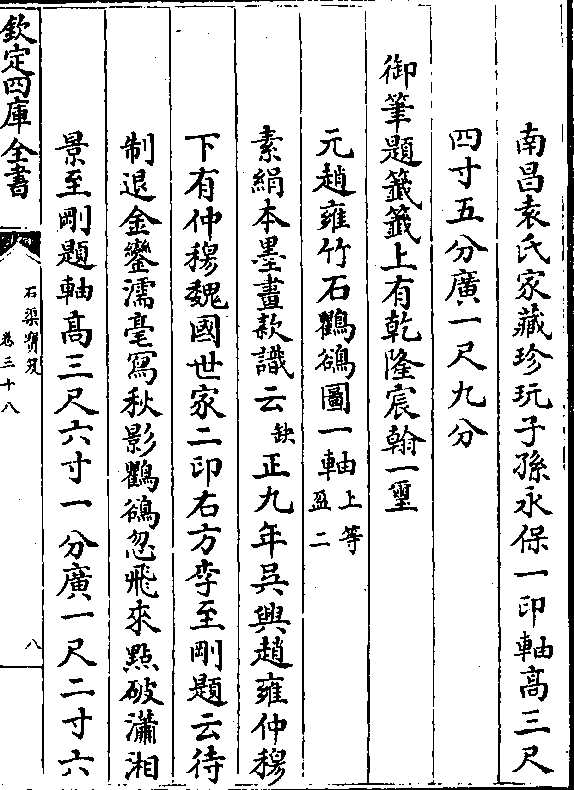 南昌袁氏家藏珍玩子孫永保一印軸高三尺
四寸五分廣一尺九分
御筆題籤籤上有乾隆宸翰一璽
元趙雍竹石鸜鵒圖一軸上等盈二
素絹本墨畫款識云缺正九年吳興趙雍仲穆
下有仲穆魏國世家二印右方李至剛題云待
制退金鑾濡毫寫秋影鸜鵒忽飛來點破瀟湘
景至剛題軸高三尺六寸一分廣一尺二寸六
欽定四庫全書
石渠寶笈
卷三十八
八